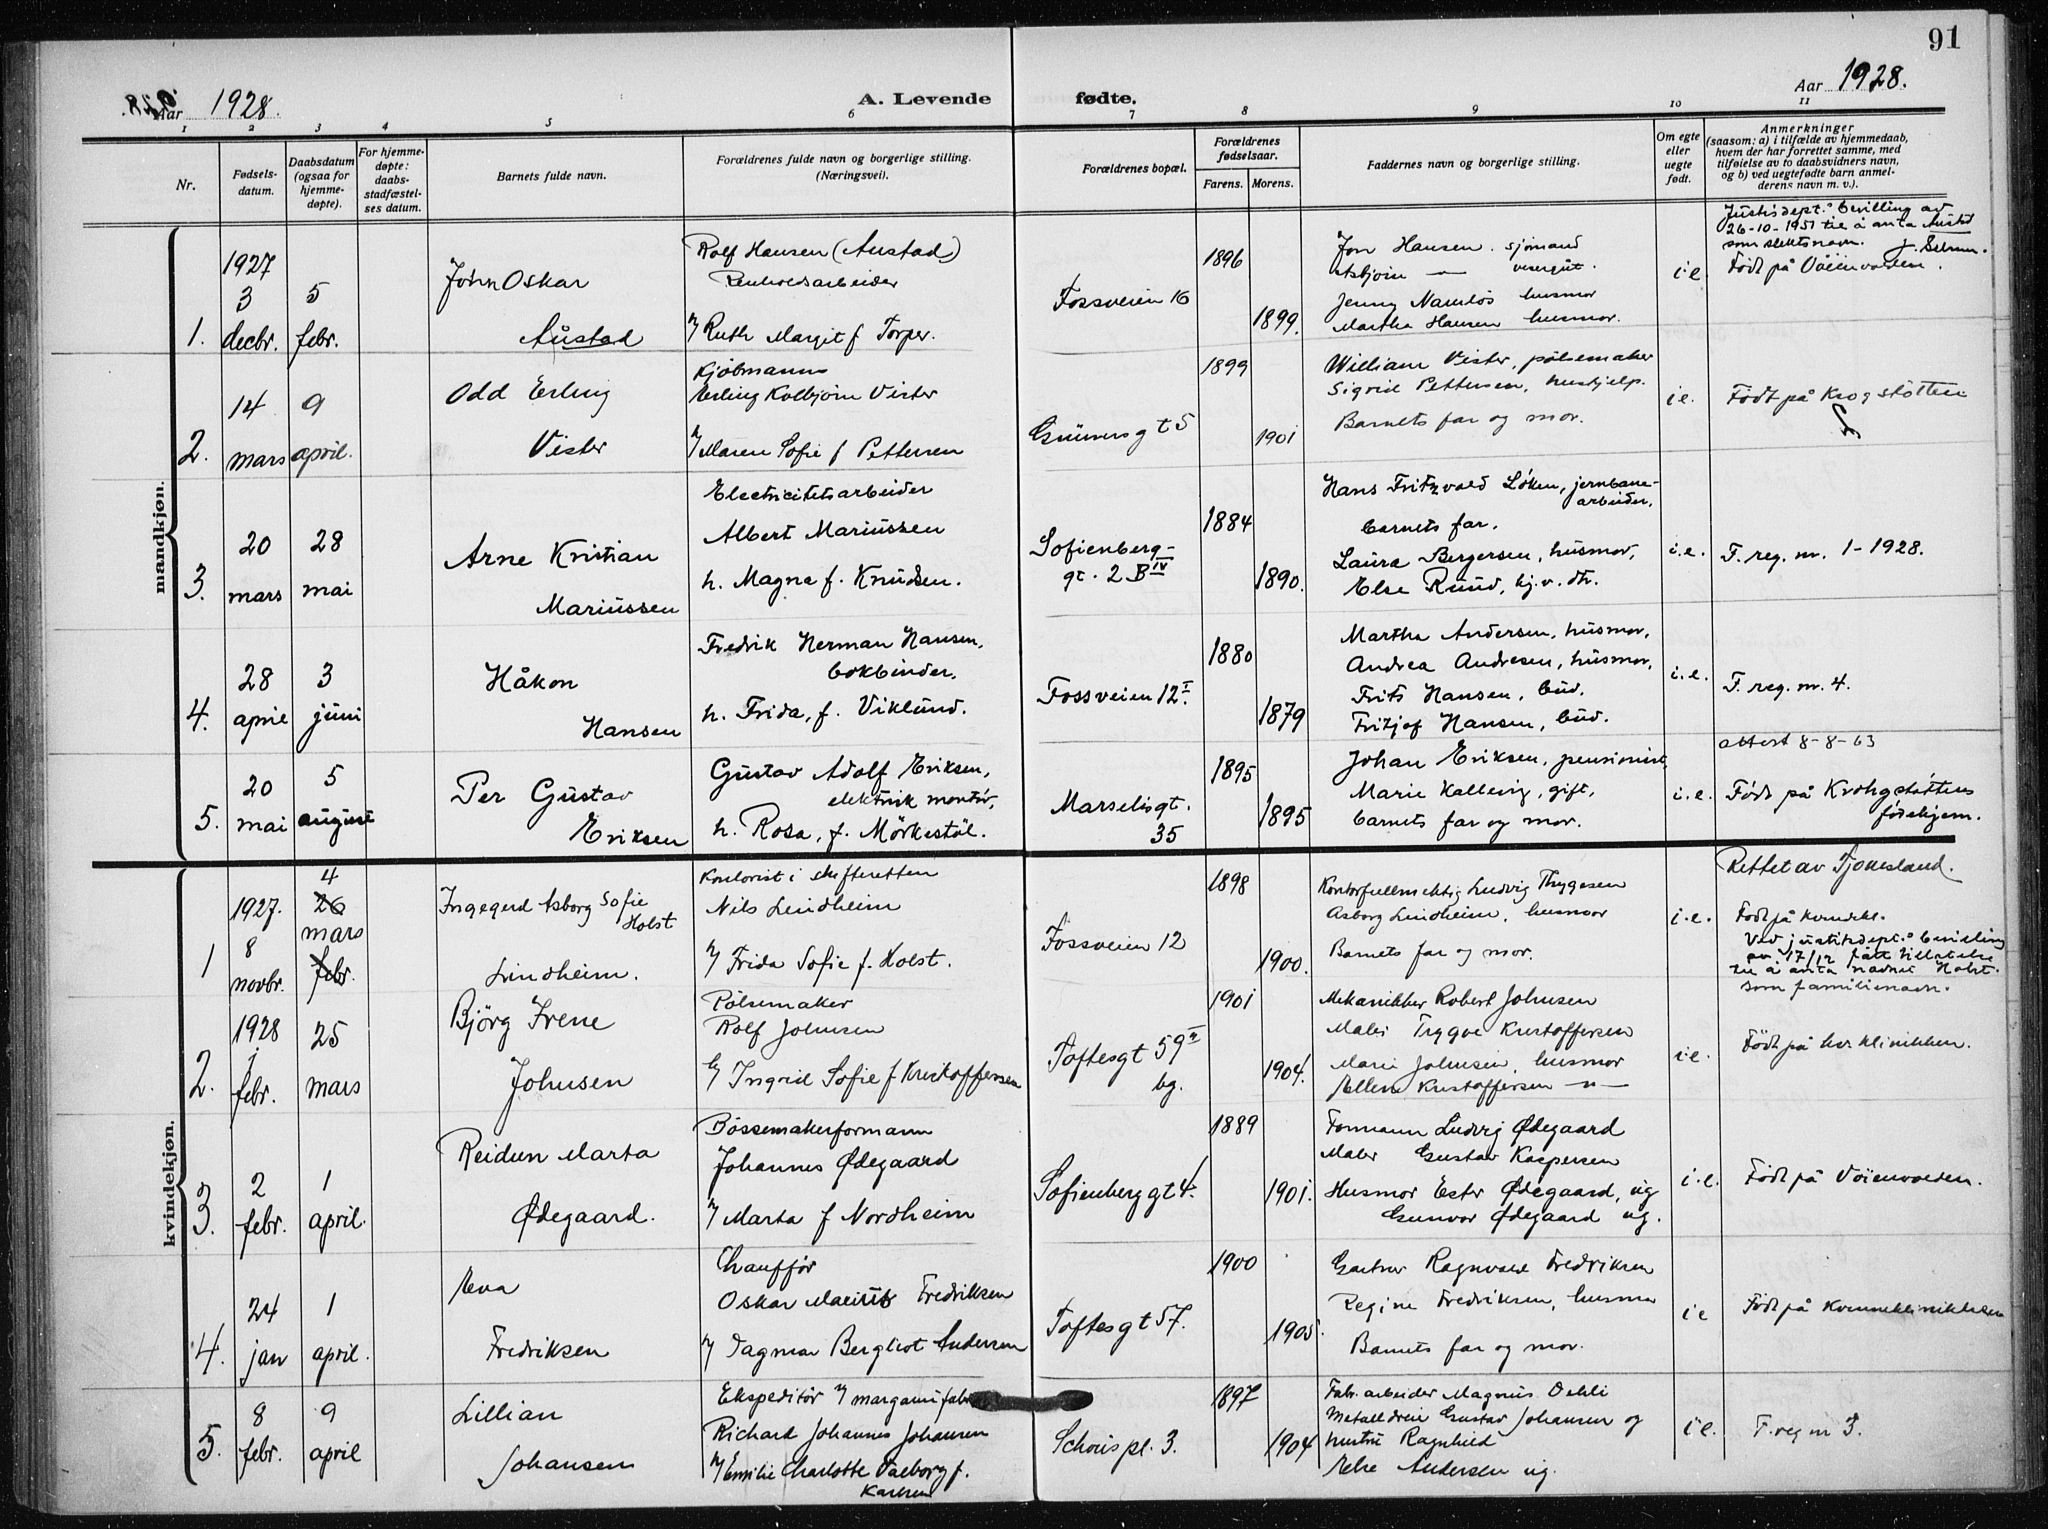 91
Aar 1928.
A. Levende fødte.
Aar 1928.
1 2 3 4 5 6 7 8 9 10 11
Nr.
Fødsels-
datum.
Daabsdatum
(ogsaa for
hjemme-
døpte).
For hjemme-
døpte:
daabs-
stadfæstel-
ses datum.
Barnets fulde navn.
Forældrenes fulde navn og borgerlige stilling.
(Næringsvei).
Forældrenes bopæl.
Forældrenes
fødselsaar.
Farens. Morens.
Faddernes navn og borgerlige stilling.
Om egte
eller
uegte
født.
Anmerkninger
(saasom: a) i tilfælde av hjemmedaab,
hvem der har forrettet samme, med
tilføielse av to daabsvidners navn,
og b) ved uegtefødte barn anmel-
derens navn m. v.).
mandkjøn.
1.
1927
3
decbr.
5
febr.
John Oskar
Austad
Rolf Hansen (Austad)
Renholdsarbeider
Ruth Margit f Torper.
Fossveien 16
1896
1899.
Jon Hansen. sjømand
Asbjørn — visergut.
Jenny Namløs husmor
Martha Hansen husmor.
i e
Justisdept.s bevilling av
26-10-1951 til å anta Austad
som slektsnavn.
Født på Vøienvolden.
2.
14
mars
9
april.
Odd Erling
Vister
Kjøbmann
Erling Kolbjørn Vister
Maren Sofie f Pettersen
Grünersgt 5
1899
1901
William Vister, pølsemaker
Sigrid Pettersen, hushjelp.
Barnets far og mor.
i e.
Født på Krogstøtten
3.
20
mars
28
mai
Arne Kristian
Mariussen
Electricitetsarbeider
Albert Mariussen
h. Magna f. Knudsen.
Sofienberg-
gt. 2 B IV
1884
1890.
Hans Fritzvold Løken, jernbane-
arbeider,
barnets far.
Laura Bergersen, husmor,
Else Ruud, hj.v. dtr.
i.e.
F. reg. nr. 1-1928.
4.
28
april
3
juni
Håkon
Hansen
Fredrik Herman Hansen,
bokbinder,
h. Frida, f. Viklund.
Fossveien 12 I
1880
1879
Martha Andersen, husmor,
Andrea Andresen, husmor,
Frits Hansen, bud.
Fritjof Hansen, bud.
i.e.
F. reg. nr. 4.
5.
20
mai
5
august
Per Gustav
Eriksen
Gustav Adolf Eriksen,
elektrisk montör,
h. Rosa, f. Mörkestöl.
Marselisgt.
35
1895
1895
Johan Eriksen, pensionist
Marie Kallevig, gift,
barnets far og mor.
i.e.
attest 8-8-63
Født på Krohgstøttens
fødehjem.
kvindekjøn.
1
1927.
8
novbr.
4
26
mars
febr.
Ingegerd Asborg Sofie
Holst
Lindheim.
Kontorist i skifteretten
Nils Lindheim
Frida Sofie f. Holst.
Fossveien 12
1898
1900.
Kontorfullmektig Ludvig Thygesen
Asborg Lindheim, husmor
Barnets far og mor.
i.e.
Rettet av Tjomsland.
Født på kvinnekl.
Ved justitsdept.s bevilling
av 17/12 fått tillatelse
til å anta navnet Holst
som familienavn.
2.
1928
1
febr.
25
mars
Björg Irene
Johnsen
Pølsemaker
Rolf Johnsen
Ingrid Sofie f Kristoffersen
Toftesgt 59 II
bg.
1901
1904.
Mekanikker Robert Johnsen
Maler Trygve Kristoffersen
Marie Johnsen, husmor
Ellen Kristoffersen — " —
i e.
Født på kv. klinikken.
3.
2
febr.
1
april.
Reidun Marta
Ødegaard.
Bøssemakerformann
Johannes Ødegaard
Marta f Nordheim
Sofienberggt 4.
1889
1901.
Formann Ludvig Ødegaard
Maler Gustav Kaspersen
Husmor Ester Ødegaard, ug
Gunvor Ødegaard ug.
i.e.
Født på Vøienvolden.
4.
24
jan
1
april.
Eva
Fredriksen
Chauffør
Oskar Marius Fredriksen
Dagmar Bergliot Andersen
Toftesgt 57.
1900
1905.
Gartner Ragnvald Fredriksen
Regine Fredriksen, husmor
Barnets far og mor.
i e
Født på Kvinneklinikken
5.
8
febr.
9
april
Lillian
Johansen
Ekspeditør v/ margarinfabr
Richard Johannes Johansen
Emilie Charlotte Valborg f.
Karlsen
Schous pl. 3.
1897
1904
Fabr. arbeider Magnus Oehli
Metalldreier Gustav Johansen og
hustru Ragnhild
Else Andersen ug.
i e.
F. reg nr 3.